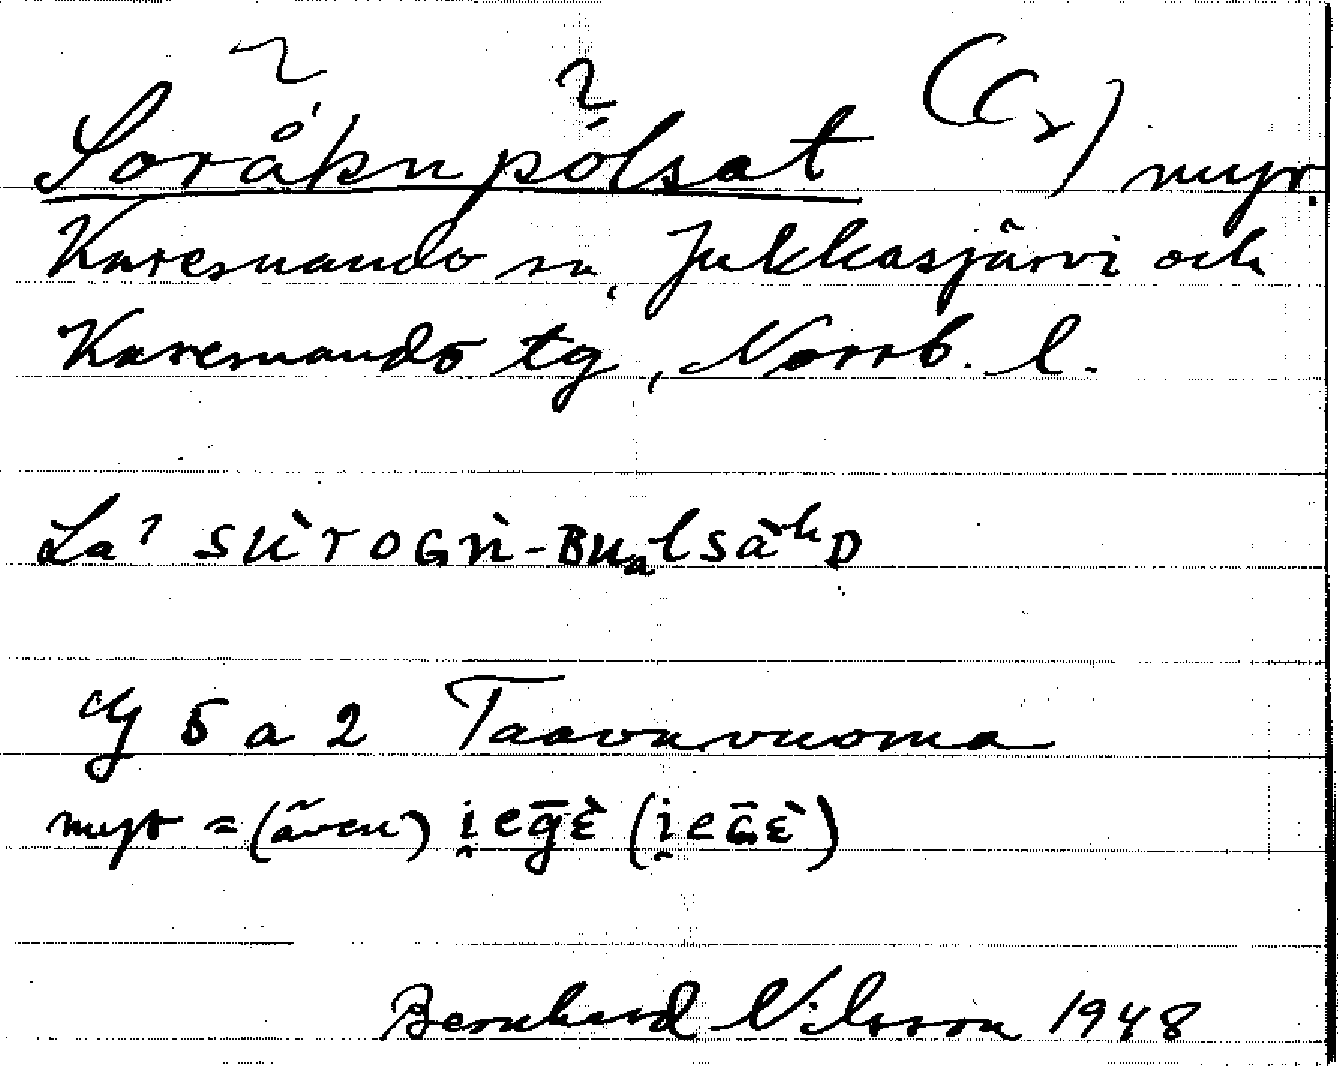 Soråkupolsat (C2) myr.
Karesuando sn, Jukkasjärvi och
Karesuando tg, Norrb. l.
La' SÙTOGǸ-BUₐlSÀʰD
cg 5 a 2 Taavavuoma
myr = (även) i̭eḡὲ (i̭eḠὲ)
Bernhard Nilsson 1948